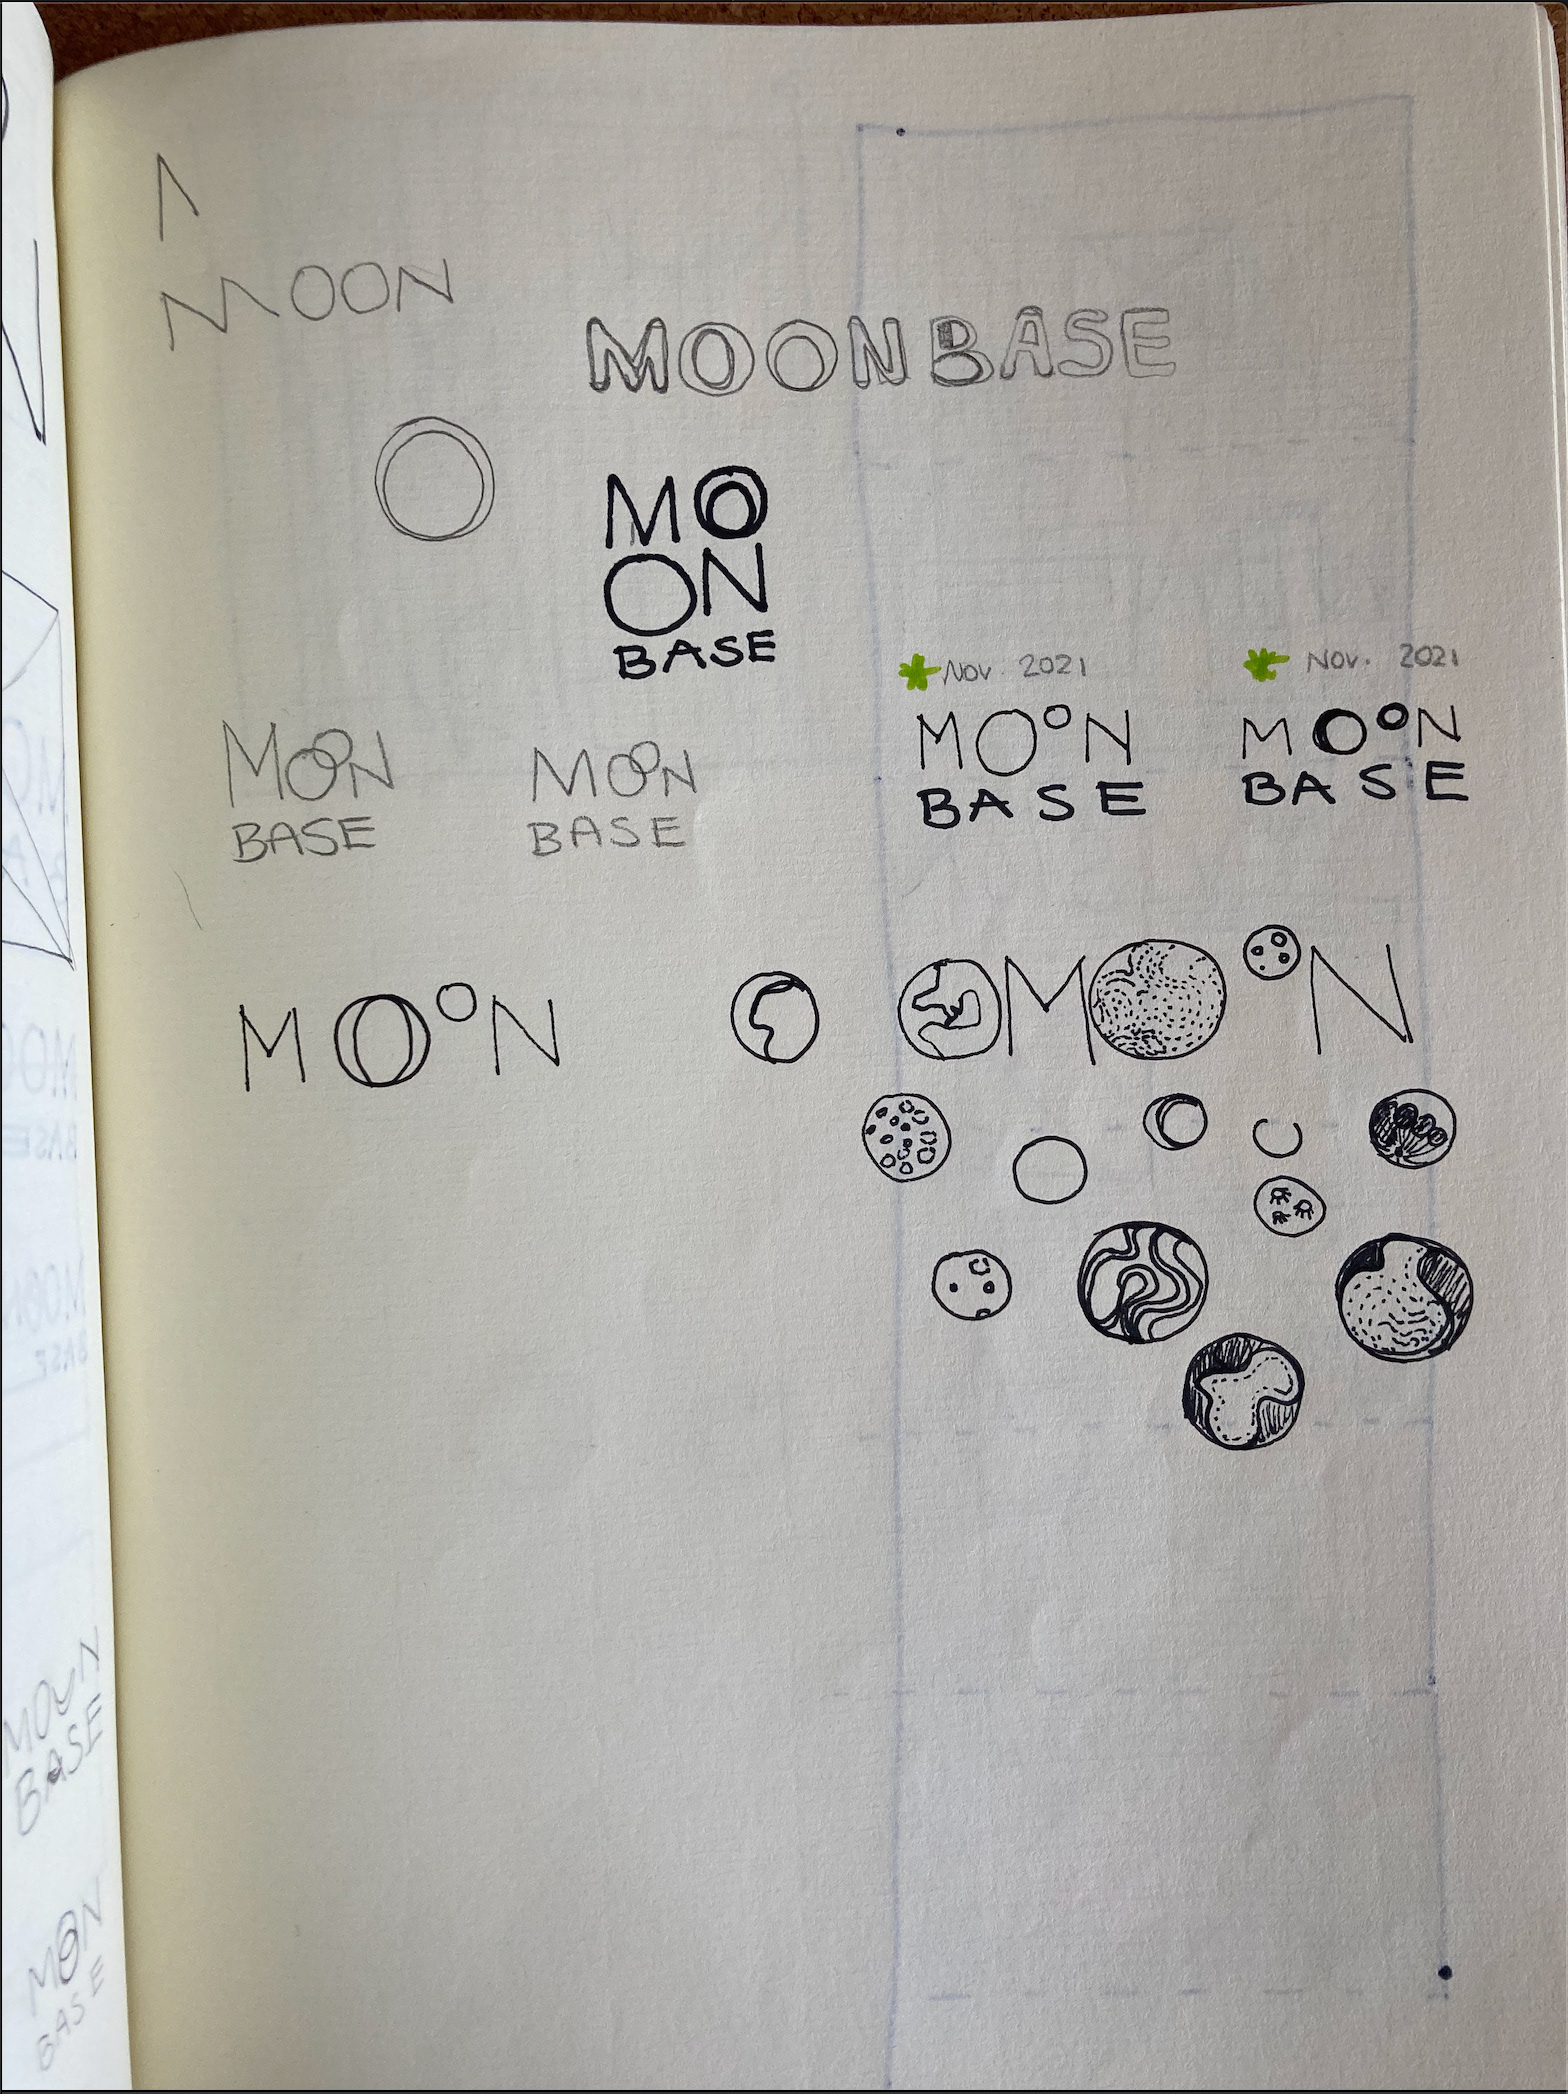 MOON
MOONBASE
MO
ON
BASE
Nov. 2021
Nov. 2021
MOON
BASE
MOON
BASE
MOON
BASE
MOON
BASE
MOON
MOON
MOON
BASE
MOON
BASE